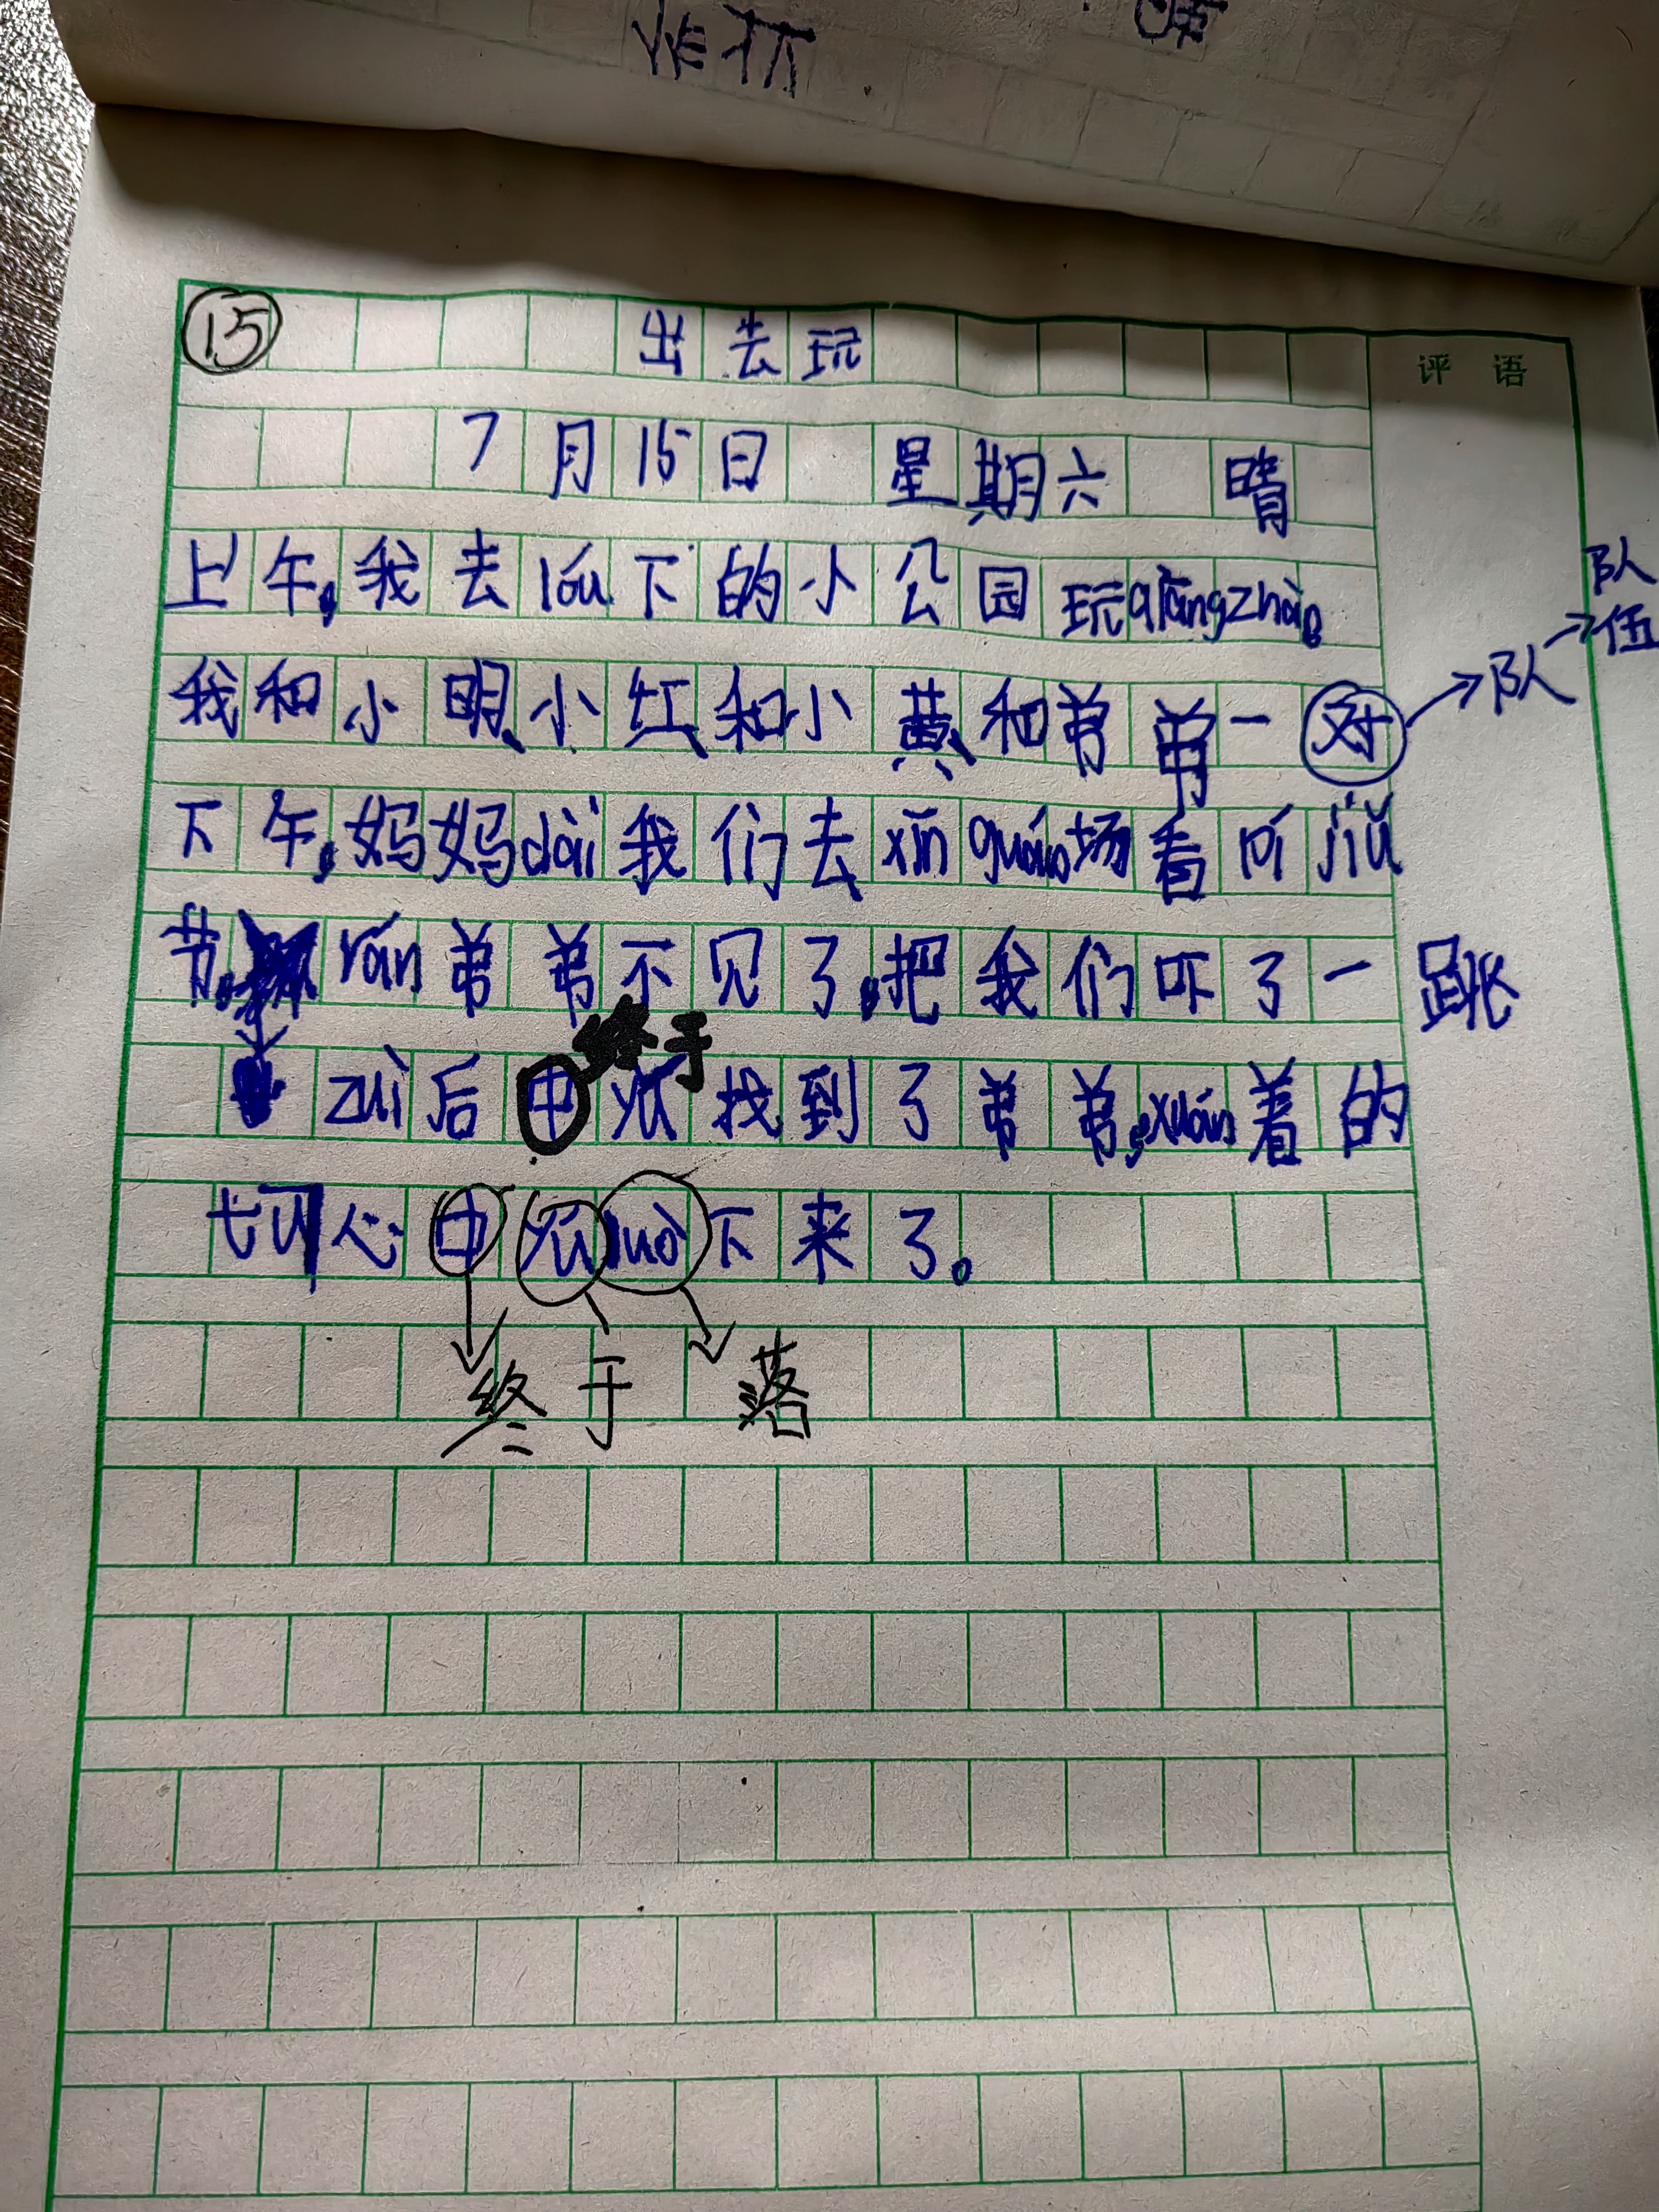 15 出去玩
评语
7月15日 星期六 晴
上午,我去lóu下的小公园玩qiāngzhàn。
我和小明、小红和小黄、和弟弟一对 → 队 → 队伍
下午,妈妈dài我们去xīn guǎng场看 pí jiǔ
节。 rán弟弟不见了,把我们吓了一跳
终于
zuì后中yú找到了弟弟,xuán着的
切心中yúluò下来了。
终于 落